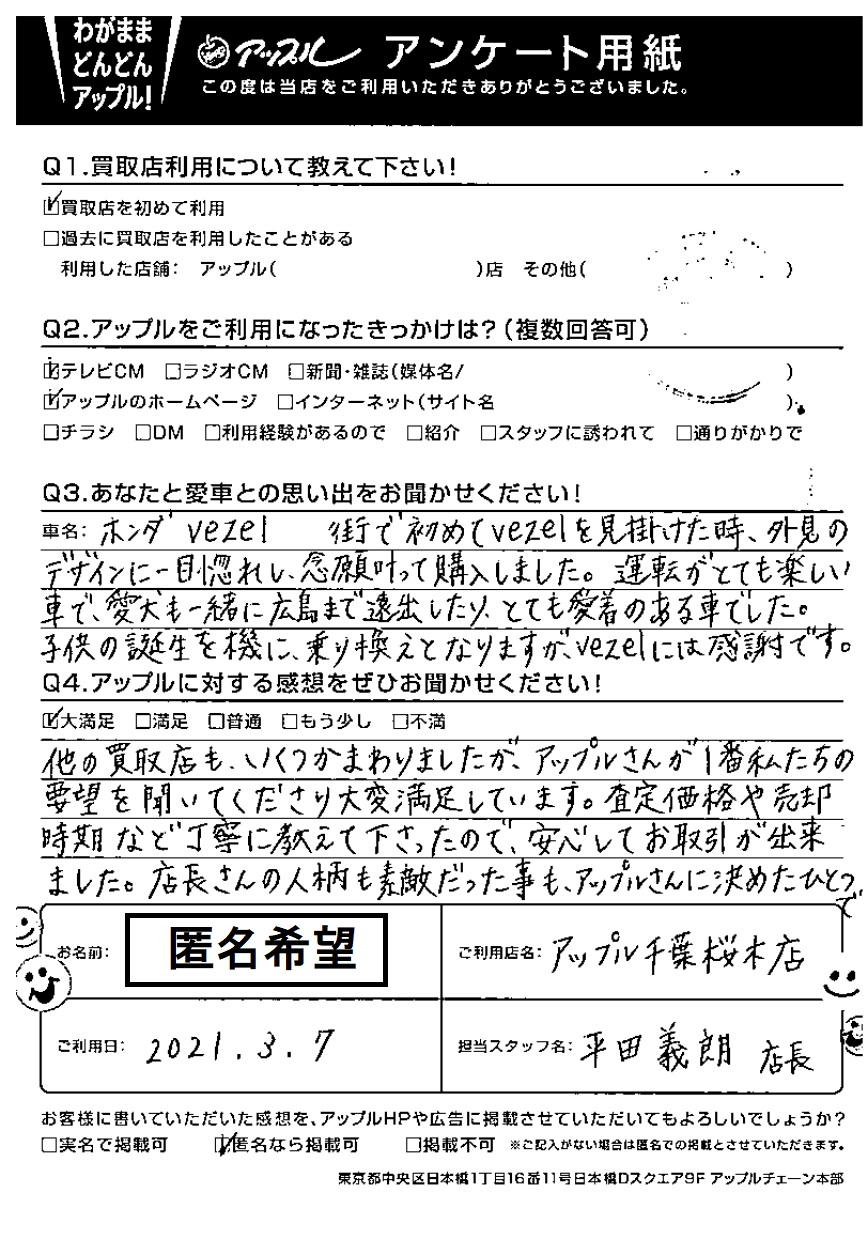 わがまま
どんどん
アップル!
アップル アンケート用紙
この度は当店をご利用いただきありがとうございました。
Q1.買取店利用について教えて下さい!
☑買取店を初めて利用
□過去に買取店を利用したことがある
利用した店舗: アップル( )店 その他( )
Q2.アップルをご利用になったきっかけは?(複数回答可)
☑テレビCM □ラジオCM □新聞・雑誌(媒体名/ )
☑アップルのホームページ □インターネット(サイト名 )
□チラシ □DM □利用経験があるので □紹介 □スタッフに誘われて □通りがかりで
Q3.あなたと愛車との思い出をお聞かせください!
車名: ホンダ vezel 街で初めてvezelを見掛けた時、外見の
デザインに一目惚れし、念願叶って購入しました。運転がとても楽しい
車で、愛犬も一緒に広島まで遠出したり、とても愛着のある車でした。
子供の誕生を機に、乗り換えとなりますが、vezelには感謝です。
Q4.アップルに対する感想をぜひお聞かせください!
☑大満足 □満足 □普通 □もう少し □不満
他の買取店も、いくつかまわりましたが、アップルさんが1番私たちの
要望を聞いてくださり大変満足しています。査定価格や売却
時期など丁寧に教えて下さったので、安心してお取引が出来
ました。店長さんの人柄も素敵だった事も、アップルさんに決めたひとつ
で
お名前: 匿名希望 ご利用店名: アップル千葉桜木店
ご利用日: 2021.3.7 担当スタッフ名: 平田義朗 店長
お客様に書いていただいた感想を、アップルHPや広告に掲載させていただいてもよろしいでしょうか?
□実名で掲載可 ☑匿名なら掲載可 □掲載不可 ※ご記入がない場合は匿名での掲載とさせていただきます。
東京都中央区日本橋1丁目16番11号日本橋Dスクエア9F アップルチェーン本部